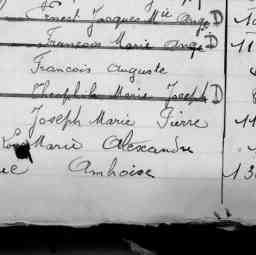 Ernest Jacques Mie Ange D 1
Francois Marie Ange D 11
Francois Auguste
Théophile Marie Joseph D
Joseph Marie Pierre 11
Marie Alexandre
Amboise 13